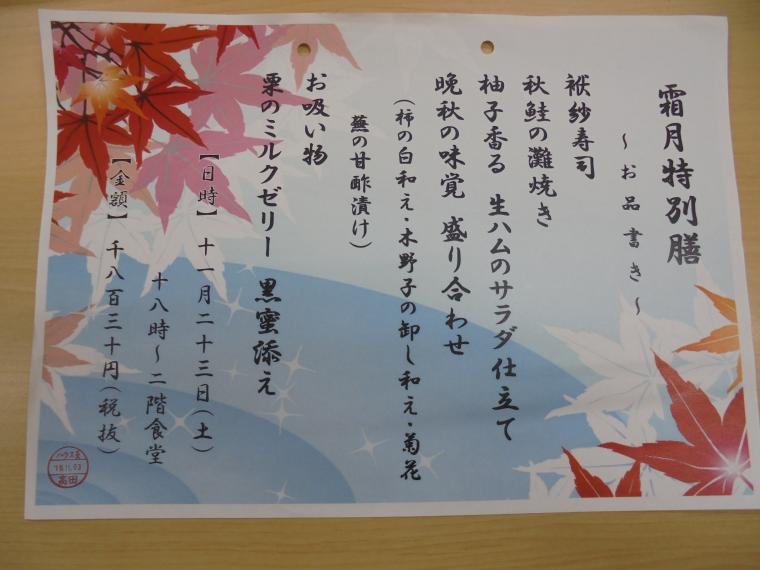 霜月特別膳
～お品書き～
袱紗寿司
秋鮭の灘焼き
柚子香る 生ハムのサラダ仕立て
晩秋の味覚 盛り合わせ
(柿の白和え・木野子の卸し和え・菊花
蕪の甘酢漬け)
お吸い物
栗のミルクゼリー 黒蜜添え
【日時】 十一月二十三日(土)
十八時～二階食堂
【金額】 千八百三十円(税抜)
高田